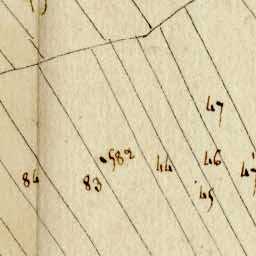 47
582
44
46
47
84
83
45